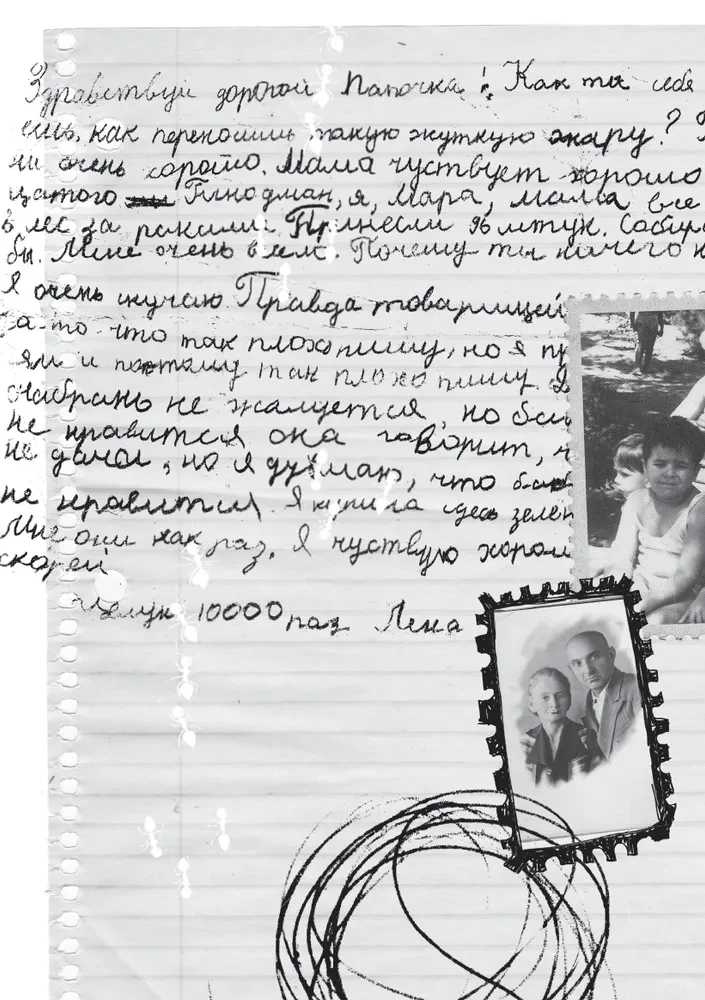 Здравствуй дорогой Папочка! Как ты себя
ешь, как переносишь такую жуткую жару?
ни очень хорошо. Мама чуствует хорошо
цатого я, Мара, мама все
в лес за раками. Принесли штук.
бы. Мне очень Почему ты ничего н
Я очень скучаю. Правда товарищей
за то что так плохо пишу, но я пр
ям и поэтому так плохо пишу.
не жалуется, но
не нравится она говорит, ч
не дачи, но я думаю, что
не нравится. Я купила здесь зелен
Мне они как раз. Я чуствую хорош
скорей
Целую 10000 раз Лена